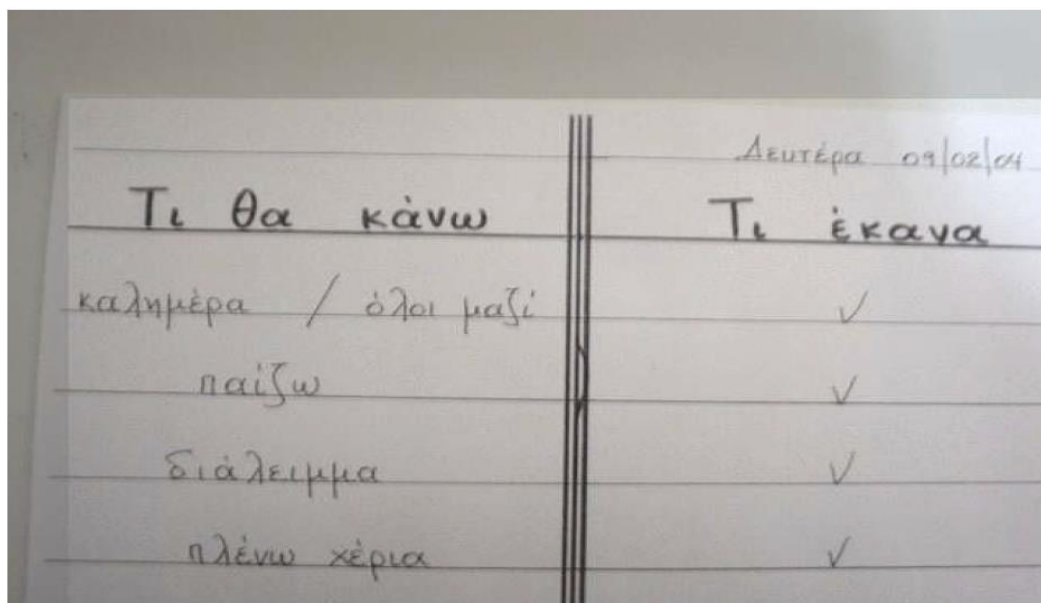 Δευτέρα 09/02/04
Τι θα κάνω Τι έκανα
καλημέρα / όλοι μαζί ✓
παίζω ✓
διάλειμμα ✓
πλένω χέρια ✓